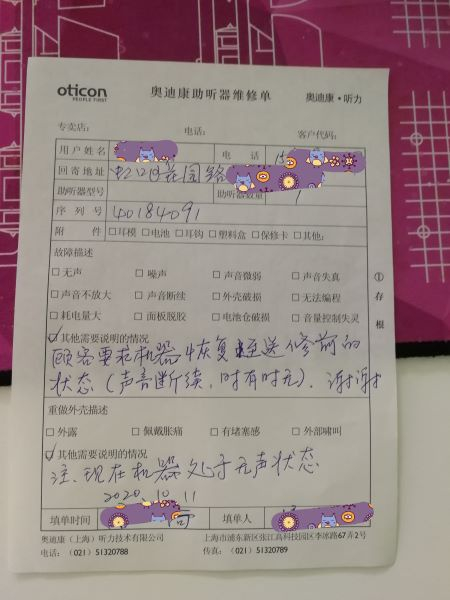 oticon 奥迪康助听器维修单 奥迪康·听力
PEOPLE FIRST
专卖店： 电话： 客户代码：
用户姓名 电 话 15
回寄地址 虹口区花园路
助听器型号 助听器数量 1
序 列 号 40184091
附 件 □耳模 □电池 □耳钩 □塑料盒 □保修卡 □其他：
故障描述
□无声 □噪声 □声音微弱 □声音失真
□声音不放大 □声音断续 □外壳破损 □无法编程
□耗电量大 □面板脱胶 □电池仓破损 □音量控制失灵
☑其他需要说明的情况
顾客要求机器恢复至送修前的
状态（声音断续，时有时无）。谢谢
重做外壳描述
□外露 □佩戴胀痛 □有堵塞感 □外部啸叫
☑其他需要说明的情况
注、现在机器处于无声状态
2020.10.11
填单时间 填单人
奥迪康（上海）听力技术有限公司 上海市浦东新区张江高科技园区李冰路67弄2号
电话：（021）51320788 传真：（021）51320789
①存根